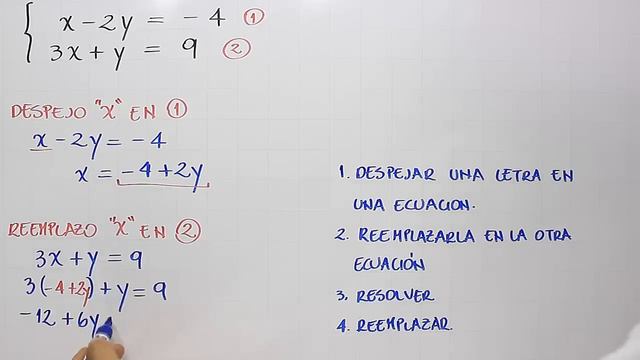 x - 2y = - 4 ①
3x + y = 9 ②
DESPEJO "X" EN ①
x - 2y = - 4
x = - 4 + 2y
REEMPLAZO "X" EN ②
3x + y = 9
3(- 4 + 2y) + y = 9
- 12 + 6y
1. DESPEJAR UNA LETRA EN
UNA ECUACION.
2. REEMPLAZARLA EN LA OTRA
ECUACIÓN
3. RESOLVER
4. REEMPLAZAR.